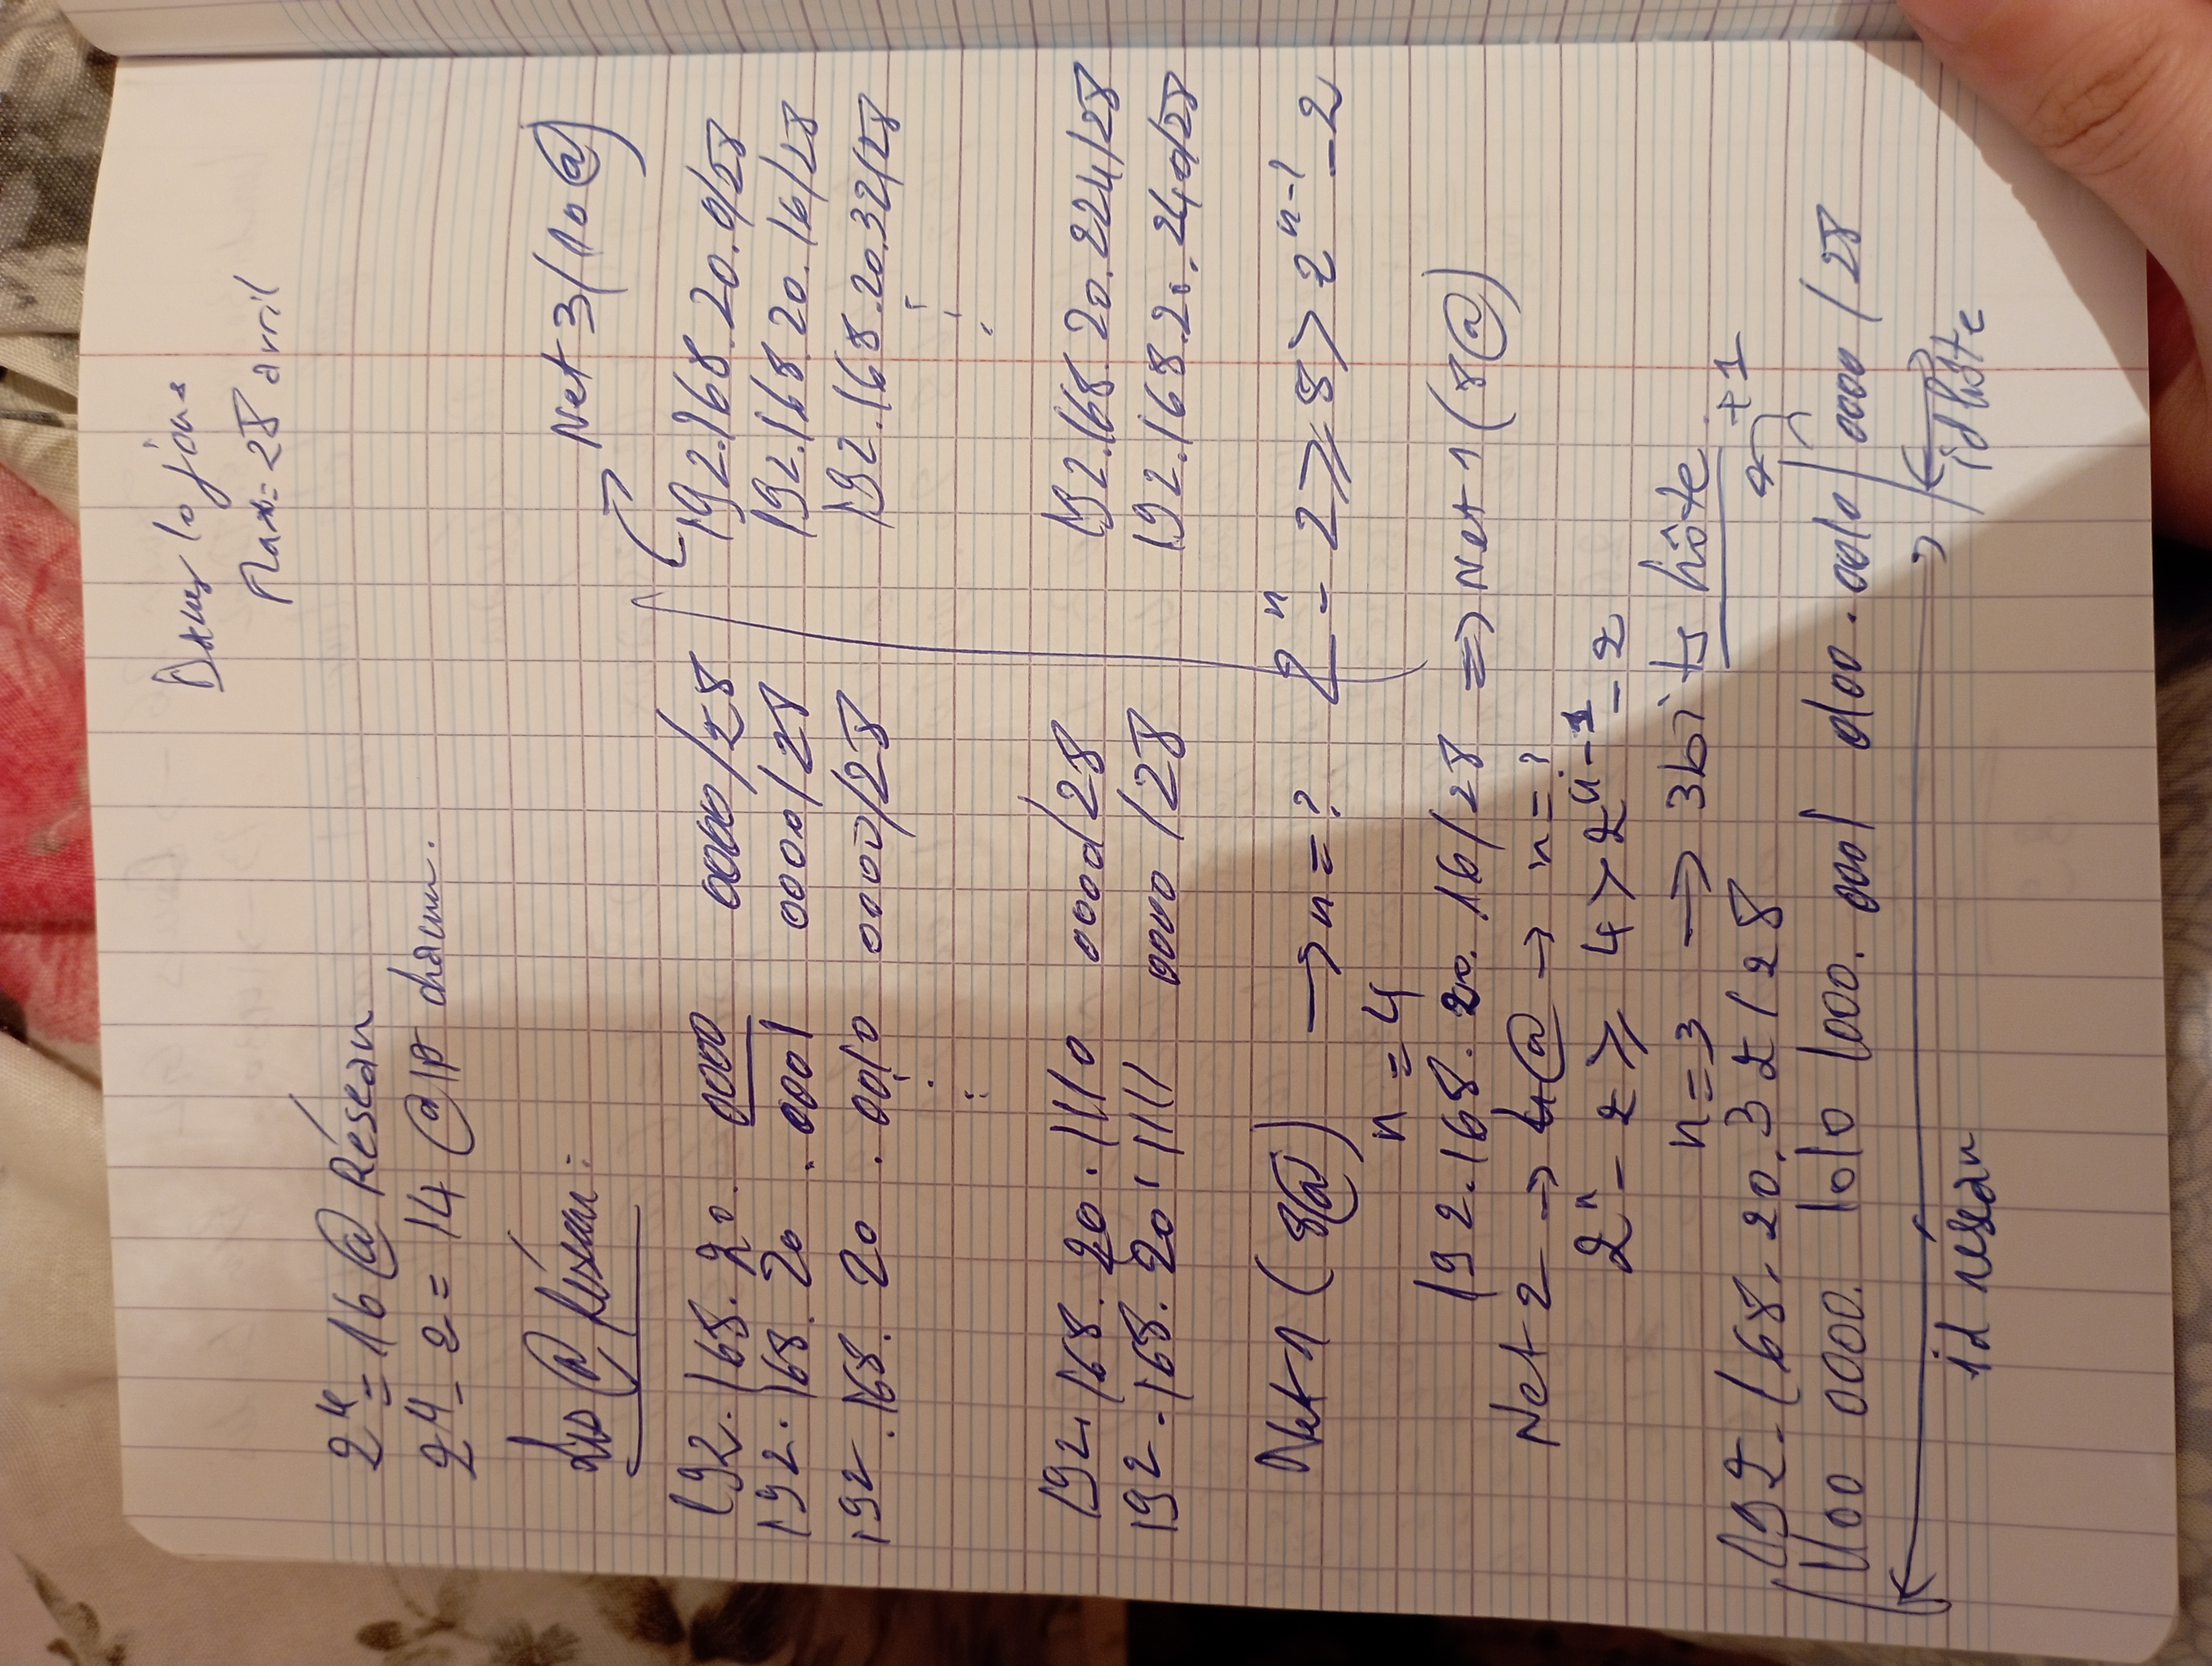 Dans 10 jours
Max = 28 avril
2^4 = 16 @ Réseau
2^4 - 2 = 14 @IP chacun.
Les @ Réseau :
Net 3 (10 @)
192.168.20. 0000 0000/28 192.168.20.0/28
192.168.20.0001 0000/28 192.168.20.16/28
192.168.20.0010 0000/28 192.168.20.32/28
192.168.20.1110 0000/28 192.168.20.224/28
192.168.20.1111 0000/28 192.168.20.240/28
Net 1 (8@) → n = ? 2^n - 2 ⩾ 8 > 2^{n-1} - 2
n = 4
192.168.20.16/28 => Net 1 (8@)
Net 2 → 4@ → n = ?
2^n - 2 ⩾ 4 > 2^{n-1} - 2
n = 3 → 3 bits hôte
+1
192.168.20.32/28
1100 0000. 1010 1000. 0001 0100. 0010 | 0000 /28
id réseau id hôte